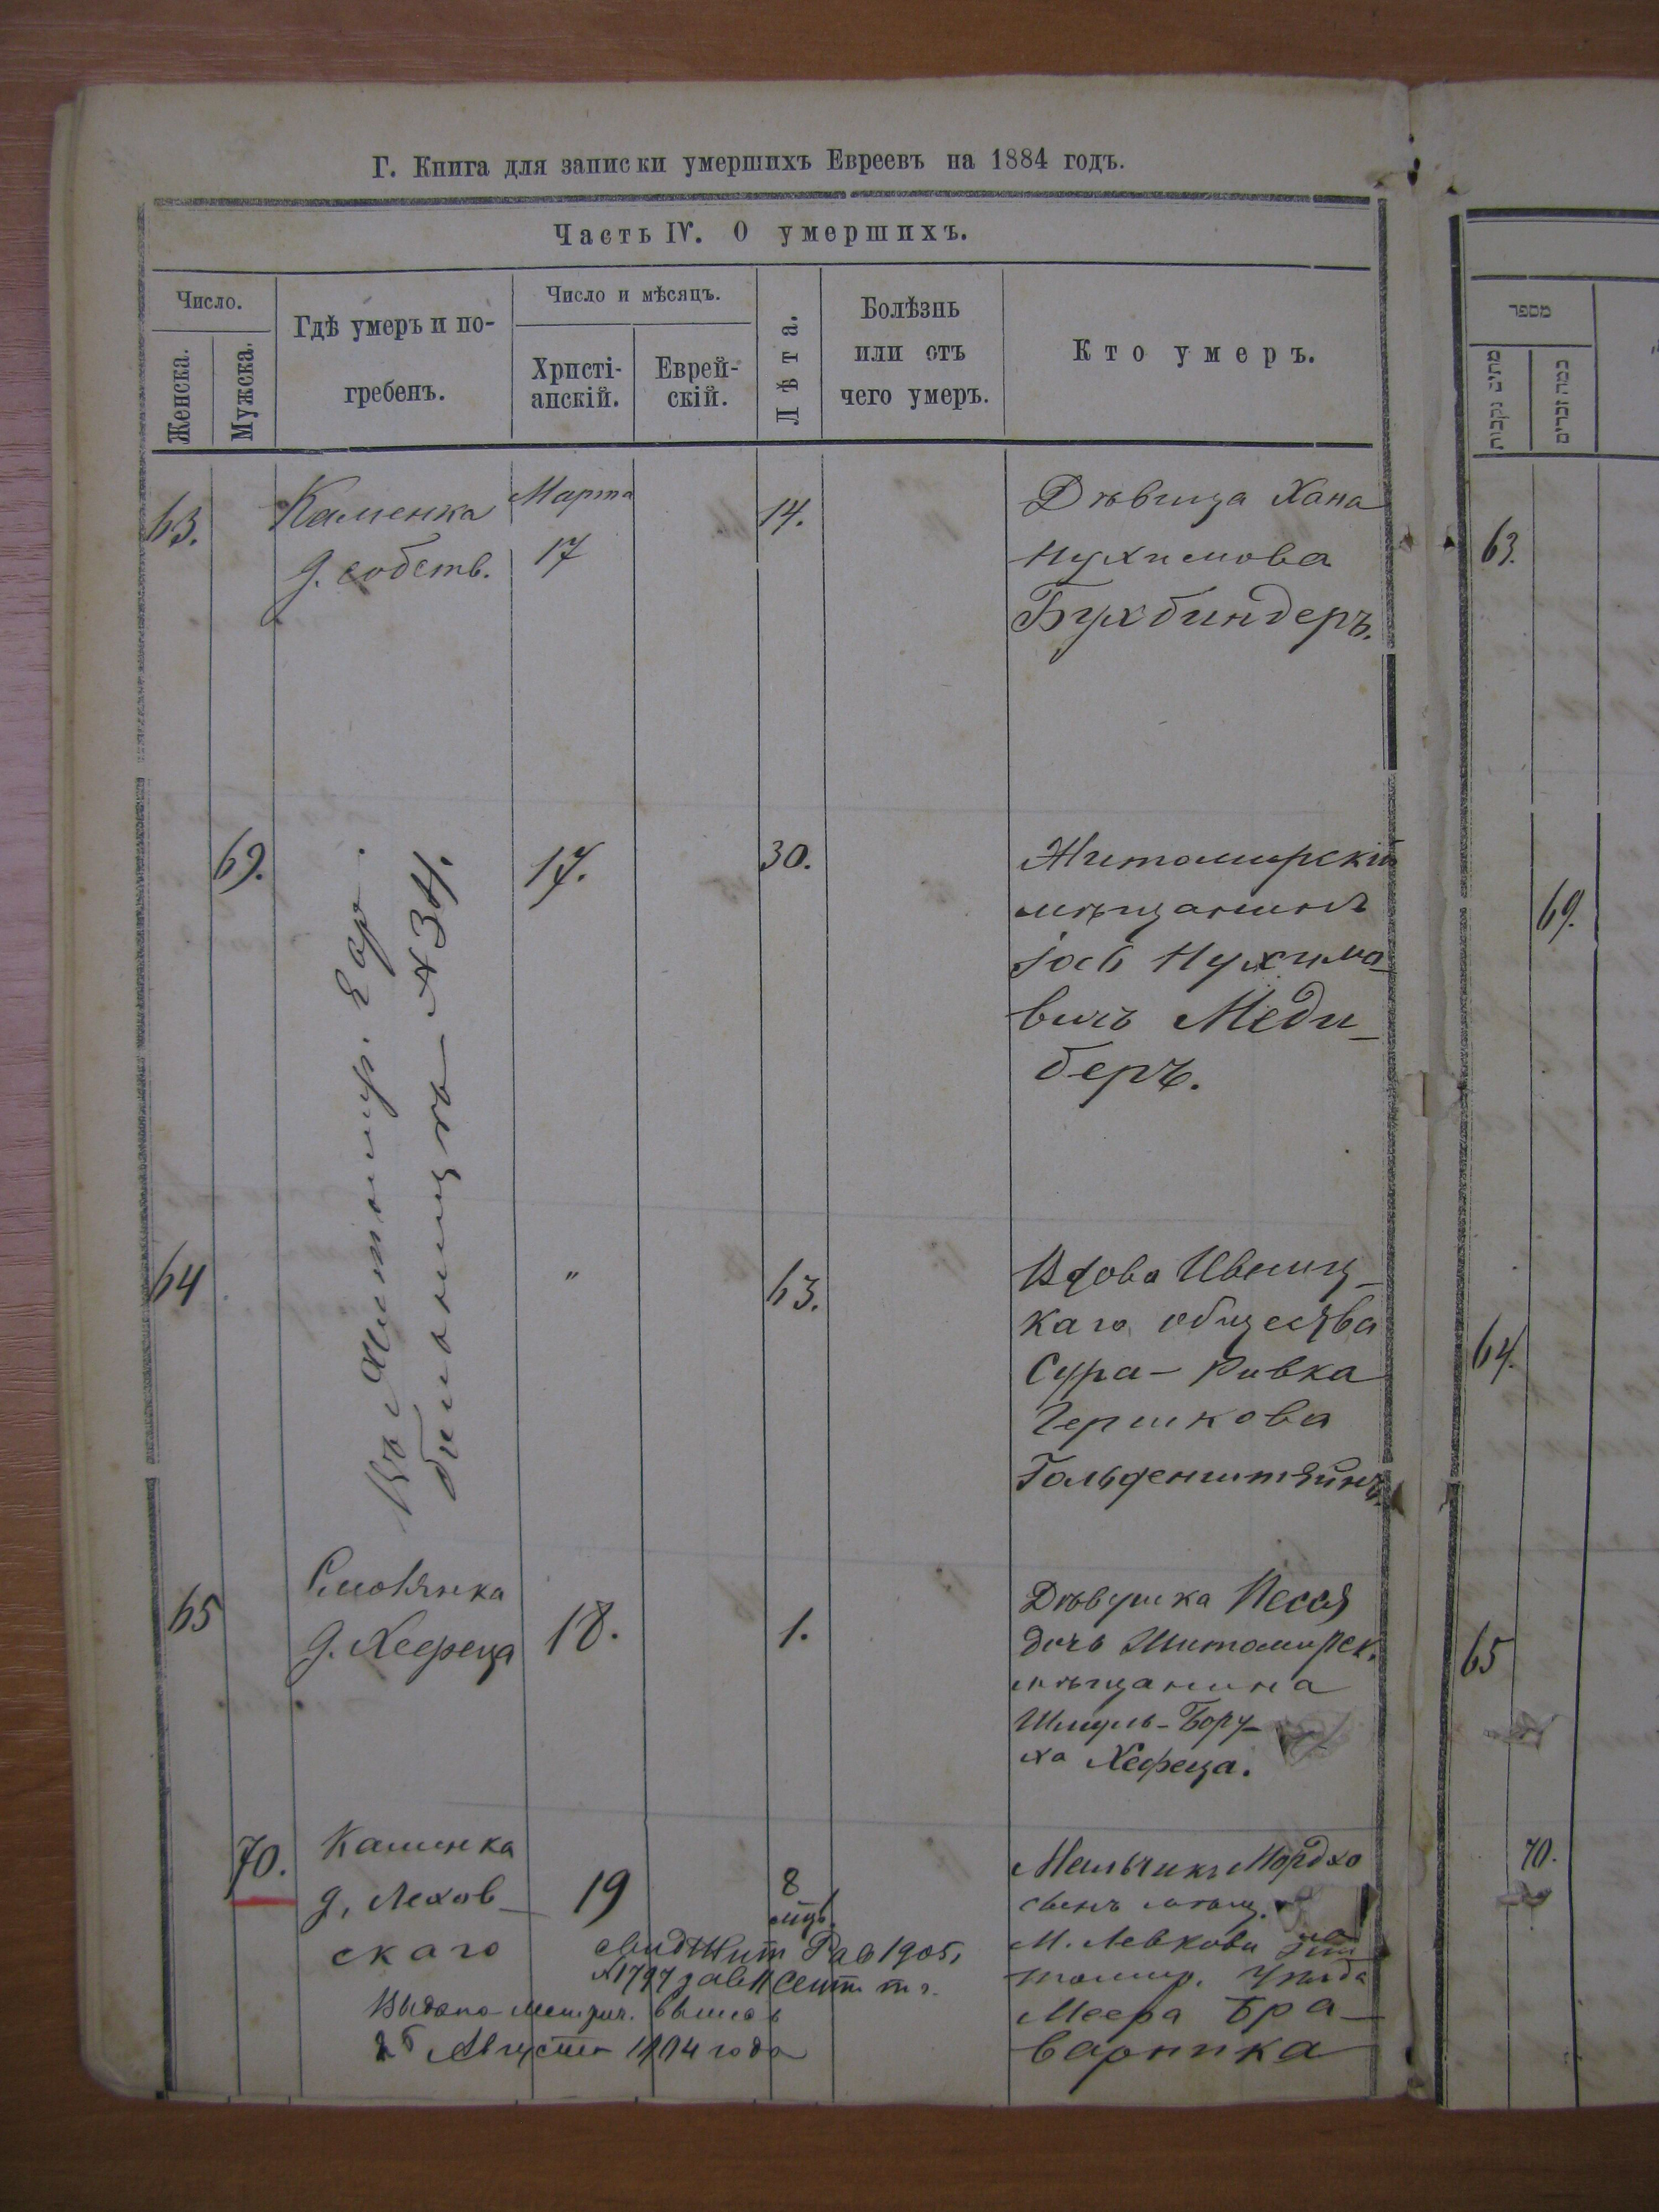 Г. Книга для записки умершихъ Евреевъ на 1884 годъ.
Часть IV. О умершихъ.
Число.
Женска.
Мужска.
Гдѣ умеръ и по-
гребенъ.
Число и мѣсяцъ.
Христі-
анскій.
Еврей-
скій.
Лѣта.
Болѣзнь
или отъ
чего умеръ.
Кто умеръ.
63.
Каменка
д. собств.
Марта
17
14.
Дѣвица Хана
Нухимова
Бухбиндеръ.
69.
Въ Житомир. Евр.
больницѣ
17.
30.
Житомирскій
мѣщанинъ
Іось Нухимо-
вичъ Меди-
беръ.
64
"
63.
Вдова Ивниц-
каго общества
Сура-Ривка
Гершкова
Гольденштейнъ.
65
Смолянка
д. Хефеца
18.
1.
Дѣвушка Песся
дочь Житомирск.
мѣщанина
Шмуль-Бору-
ха Хефеца.
70.
Каменка
д. Лехов-
скаго
19
8
мѣц.
Мальчикъ Мордхо
сынъ мѣщ.
М. Левкова Жи
томир. Уѣзда
Меера Бра-
варника
Свид Жит Рав 1905
Выдано метрич. выпись
26 Августа 1904 года
מספר
כמה זכרים
63.
69.
64.
65
70.